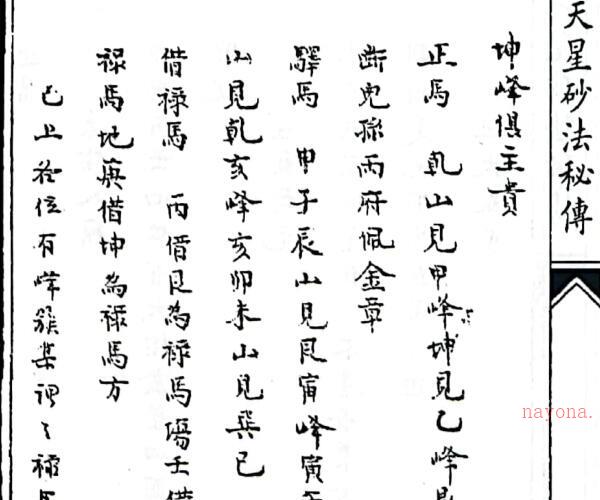 天星砂法秘傳
坤峰俱主貴
正馬 乾山見甲峰坤見乙峰
斷兒孫两府佩金章
驛馬 申子辰山見艮寅峰寅
山見乾亥峰亥卯未山見巽巳
借禄馬 丙借艮為禄馬陽壬借
禄馬地庚借坤為禄馬方
已上各位有峰簇
nayona.